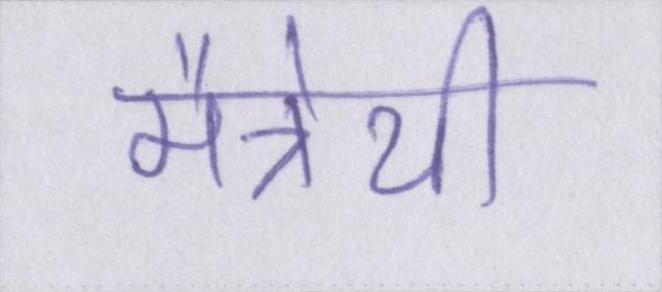 मैत्रेयी